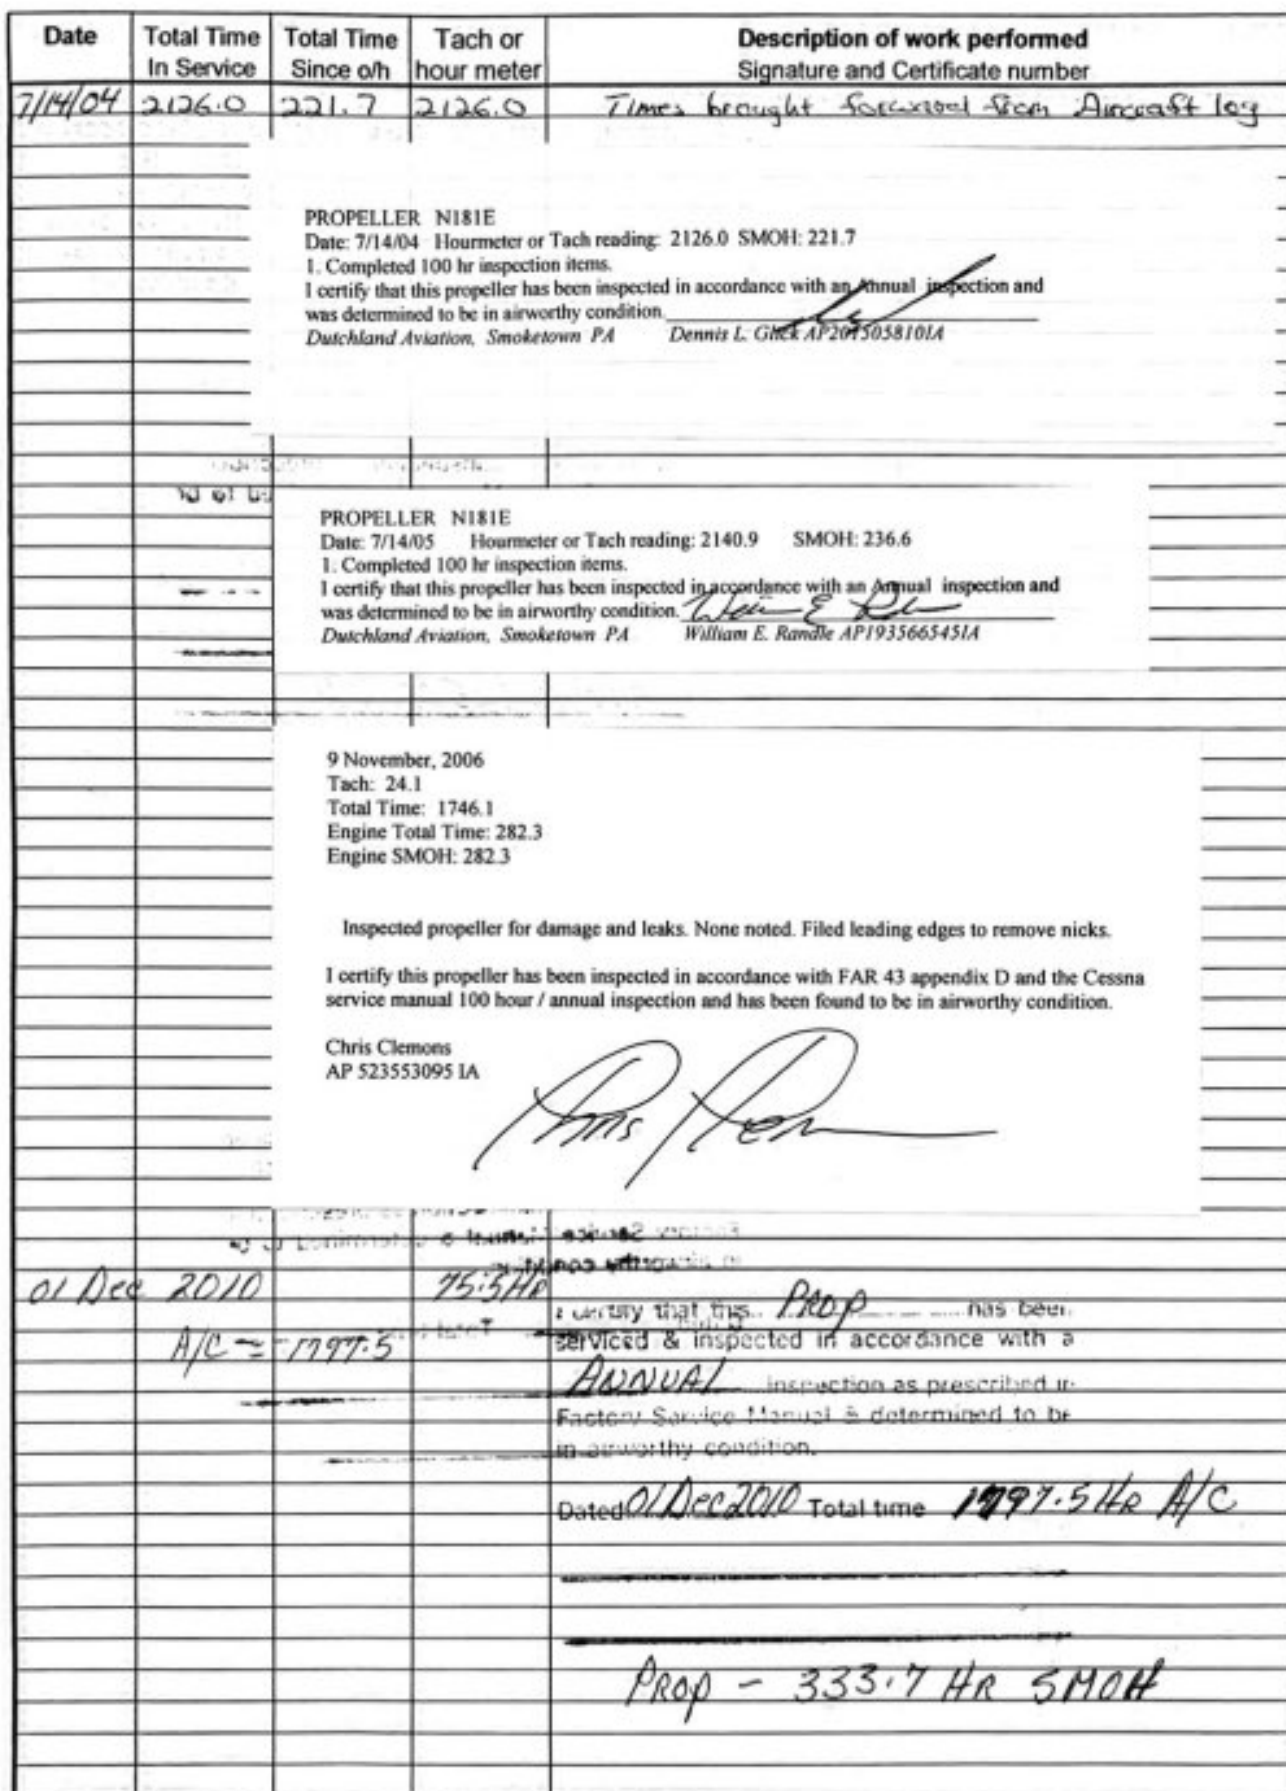 Date Total Time In Service Total Time Since o/h Tach or hour meter Description of work performed Signature and Certificate number
7/14/04 2126.0 221.7 2126.0 Times brought forward from Aircraft log
PROPELLER N181E
Date: 7/14/04 Hourmeter or Tach reading: 2126.0 SMOH: 221.7
1. Completed 100 hr inspection items.
I certify that this propeller has been inspected in accordance with an Annual inspection and
was determined to be in airworthy condition.
Dutchland Aviation, Smoketown PA Dennis L. Glick AP201505810IA
PROPELLER N181E
Date: 7/14/05 Hourmeter or Tach reading: 2140.9 SMOH: 236.6
1. Completed 100 hr inspection items.
I certify that this propeller has been inspected in accordance with an Annual inspection and
was determined to be in airworthy condition.
Dutchland Aviation, Smoketown PA William E. Randle AP193566545IA
9 November, 2006
Tach: 24.1
Total Time: 1746.1
Engine Total Time: 282.3
Engine SMOH: 282.3
Inspected propeller for damage and leaks. None noted. Filed leading edges to remove nicks.
I certify this propeller has been inspected in accordance with FAR 43 appendix D and the Cessna
service manual 100 hour / annual inspection and has been found to be in airworthy condition.
Chris Clemons
AP 523553095 IA
01 Dec 2010 75.5 HR
I certify that this PROP has been
A/C = 1797.5 serviced & inspected in accordance with a
ANNUAL inspection as prescribed in
Factory Service Manual & determined to be
in airworthy condition.
Dated 01 Dec 2010 Total time 1797.5 HR A/C
PROP - 333.7 HR SMOH